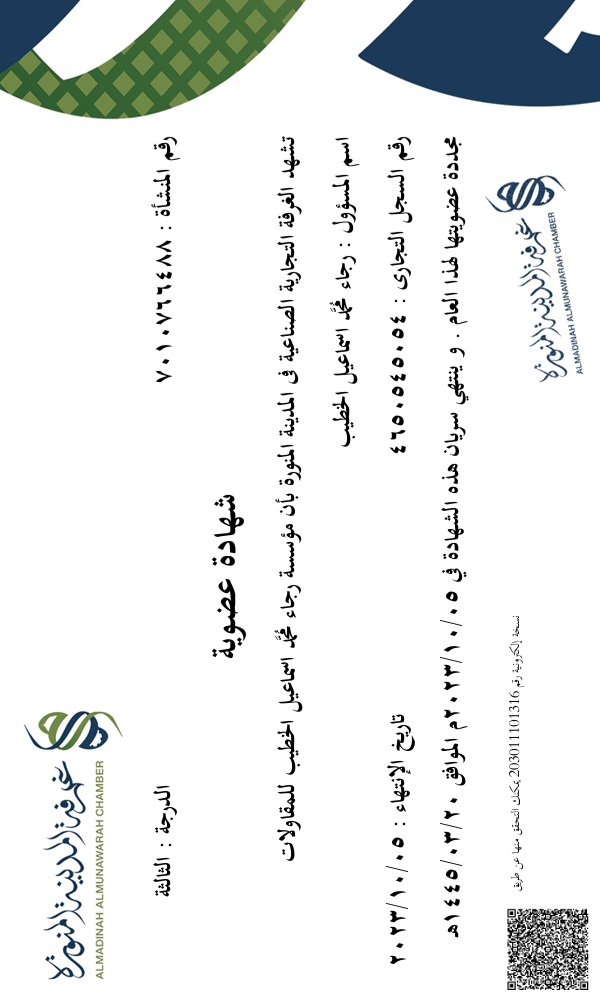 غرفة المدينة المنورة
ALMADINAH ALMUNAWARAH CHAMBER
رقم المنشأة : ٧٠١٠٧٦٦٤٨٨
الدرجة : الثالثة
شهادة عضوية
تشهد الغرفة التجارية الصناعية فى المدينة المنورة بأن مؤسسة رجاء محمد اسماعيل الخطيب للمقاولات
اسم المسؤول : رجاء محمد اسماعيل الخطيب
رقم السجل التجارى : ٤٦٥٠٥٤٥٠٥٤
تاريخ الإنتهاء : ٢٠٢٣/١٠/٠٥
مجددة عضويتها لهذا العام . و ينتهي سريان هذه الشهادة في ٢٠٢٣/١٠/٠٥م الموافق ١٤٤٥/٠٣/٢٠هـ
غرفة المدينة المنورة
ALMADINAH ALMUNAWARAH CHAMBER
نسخة إلكترونية رقم 203011101316 يمكنك التحقق منها عن طريق